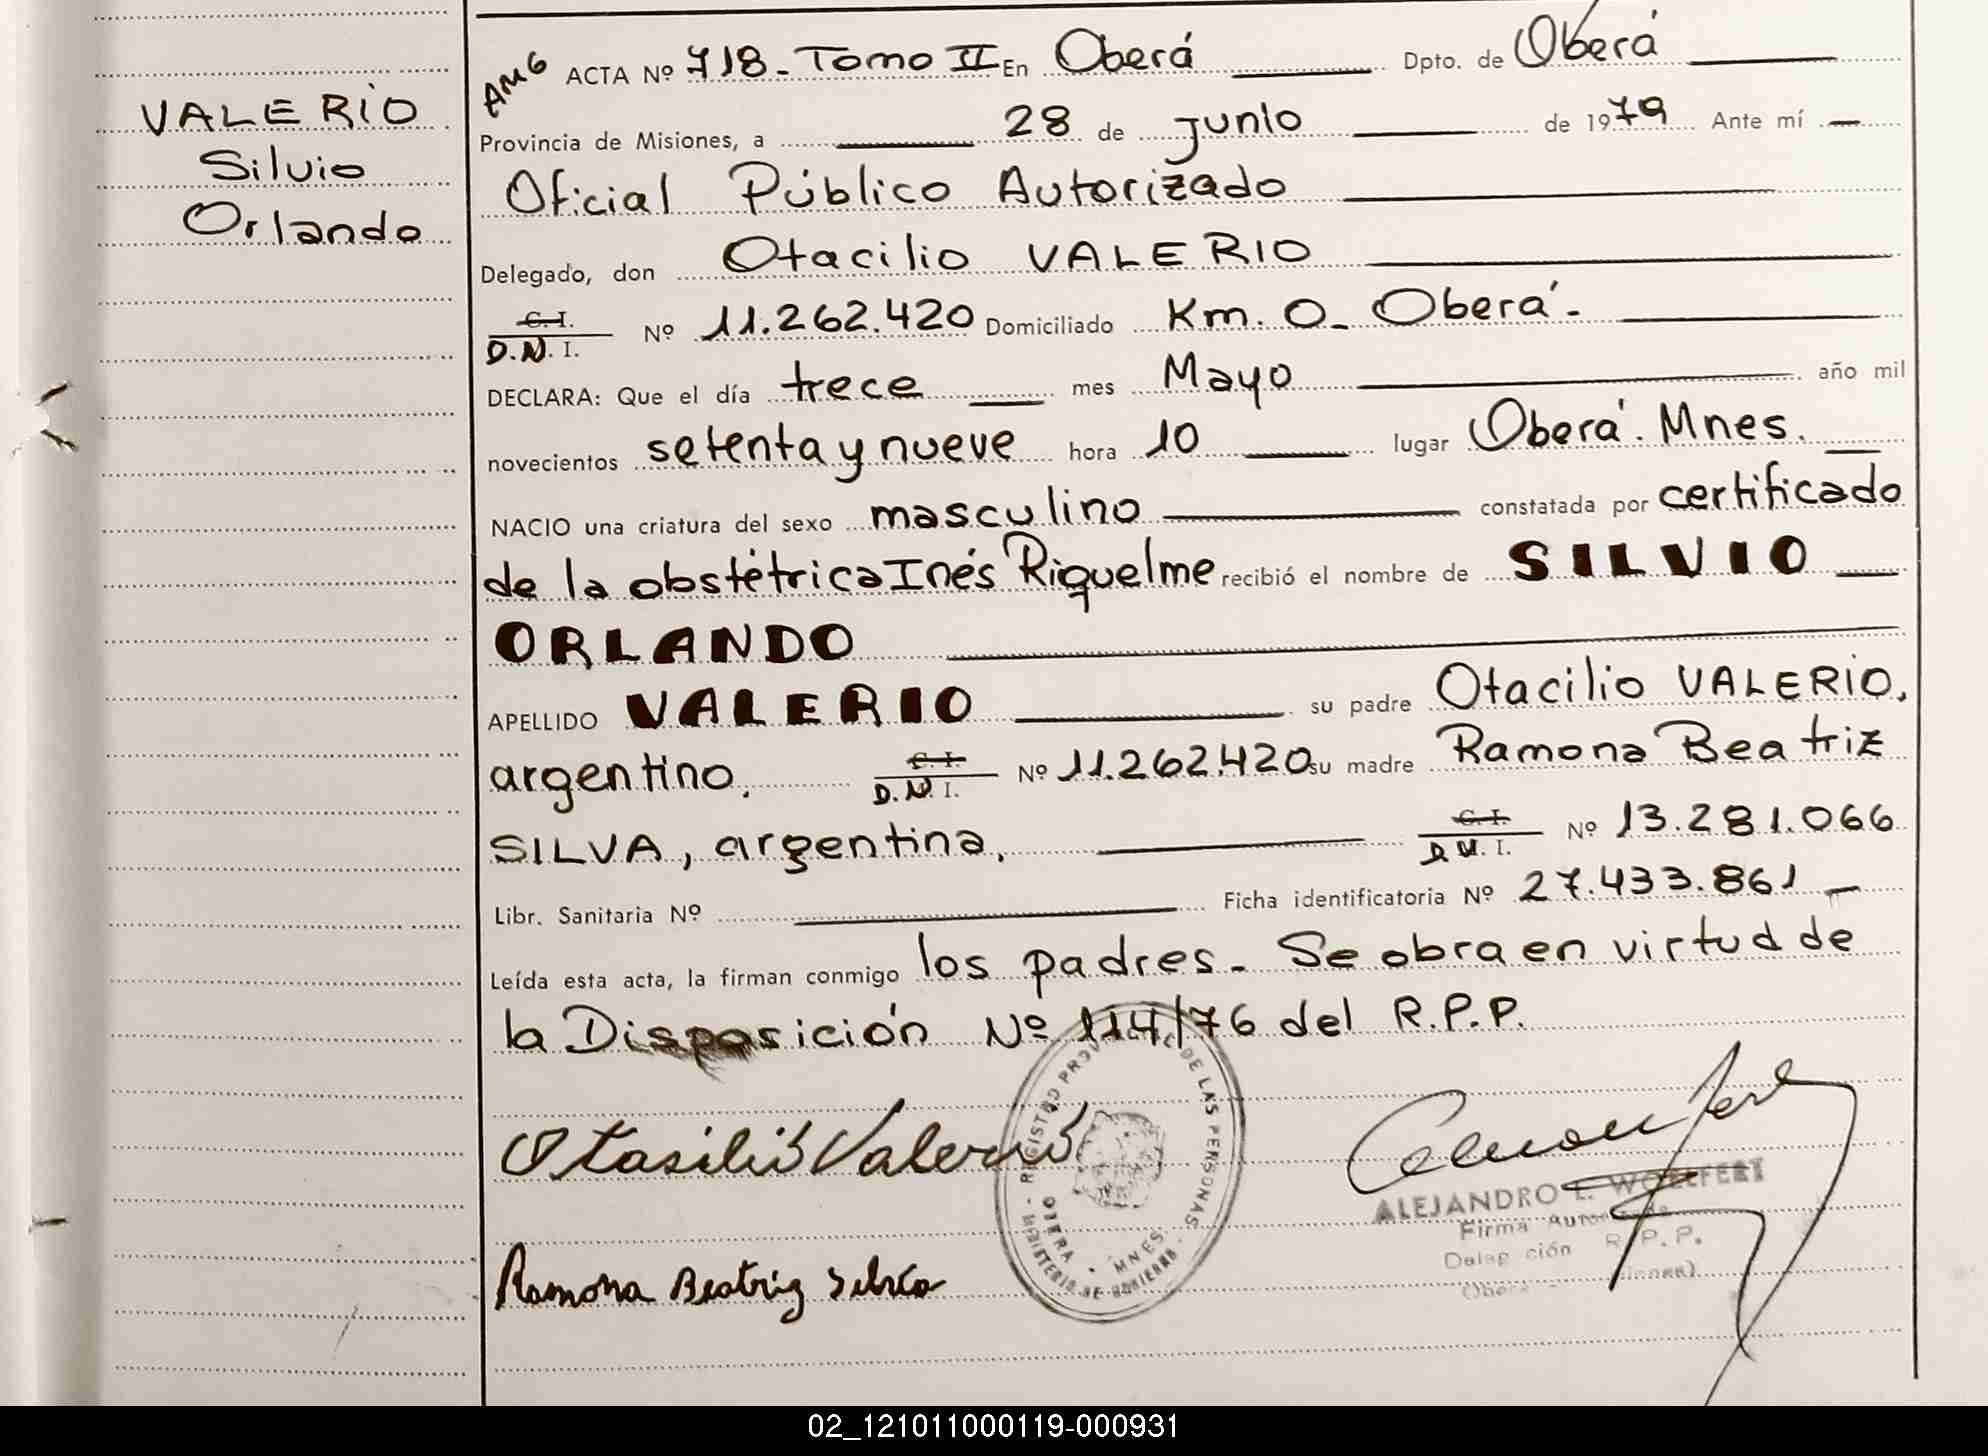 VALERIO
Silvio
Orlando
ACTA Nº 718 - Tomo II En Oberá Dpto. de Oberá
Provincia de Misiones, a 28 de junio de 1979 Ante mí
Oficial Público Autorizado
Delegado, don Otacilio VALERIO
C.I.
D.N.I. Nº 11.262.420 Domiciliado Km. 0 - Oberá.-
DECLARA: Que el día trece mes Mayo año mil
novecientos setenta y nueve hora 10 lugar Oberá. Mnes.
NACIO una criatura del sexo masculino constatada por certificado
de la obstétrica Inés Riquelme recibió el nombre de SILVIO
ORLANDO
APELLIDO VALERIO su padre Otacilio VALERIO,
argentino, C.I. D.N.I. Nº 11.262.420 su madre Ramona Beatriz
SILVA, argentina, C.I. D.N.I. Nº 13.281.066
Libr. Sanitaria Nº Ficha identificatoria Nº 27.433.861
Leída esta acta, la firman conmigo los padres. Se obra en virtud de
la Disposición Nº 114/76 del R.P.P.
Otasilio Valerio
REGISTRO PROVINCIAL DE LAS PERSONAS
MINISTERIO DE GOBIERNO
OBERA MNES.
ALEJANDRO E. WOLFFERT
Firma
Delegación R.P.P.
Ramona Beatriz Silva
02_121011000119-000931